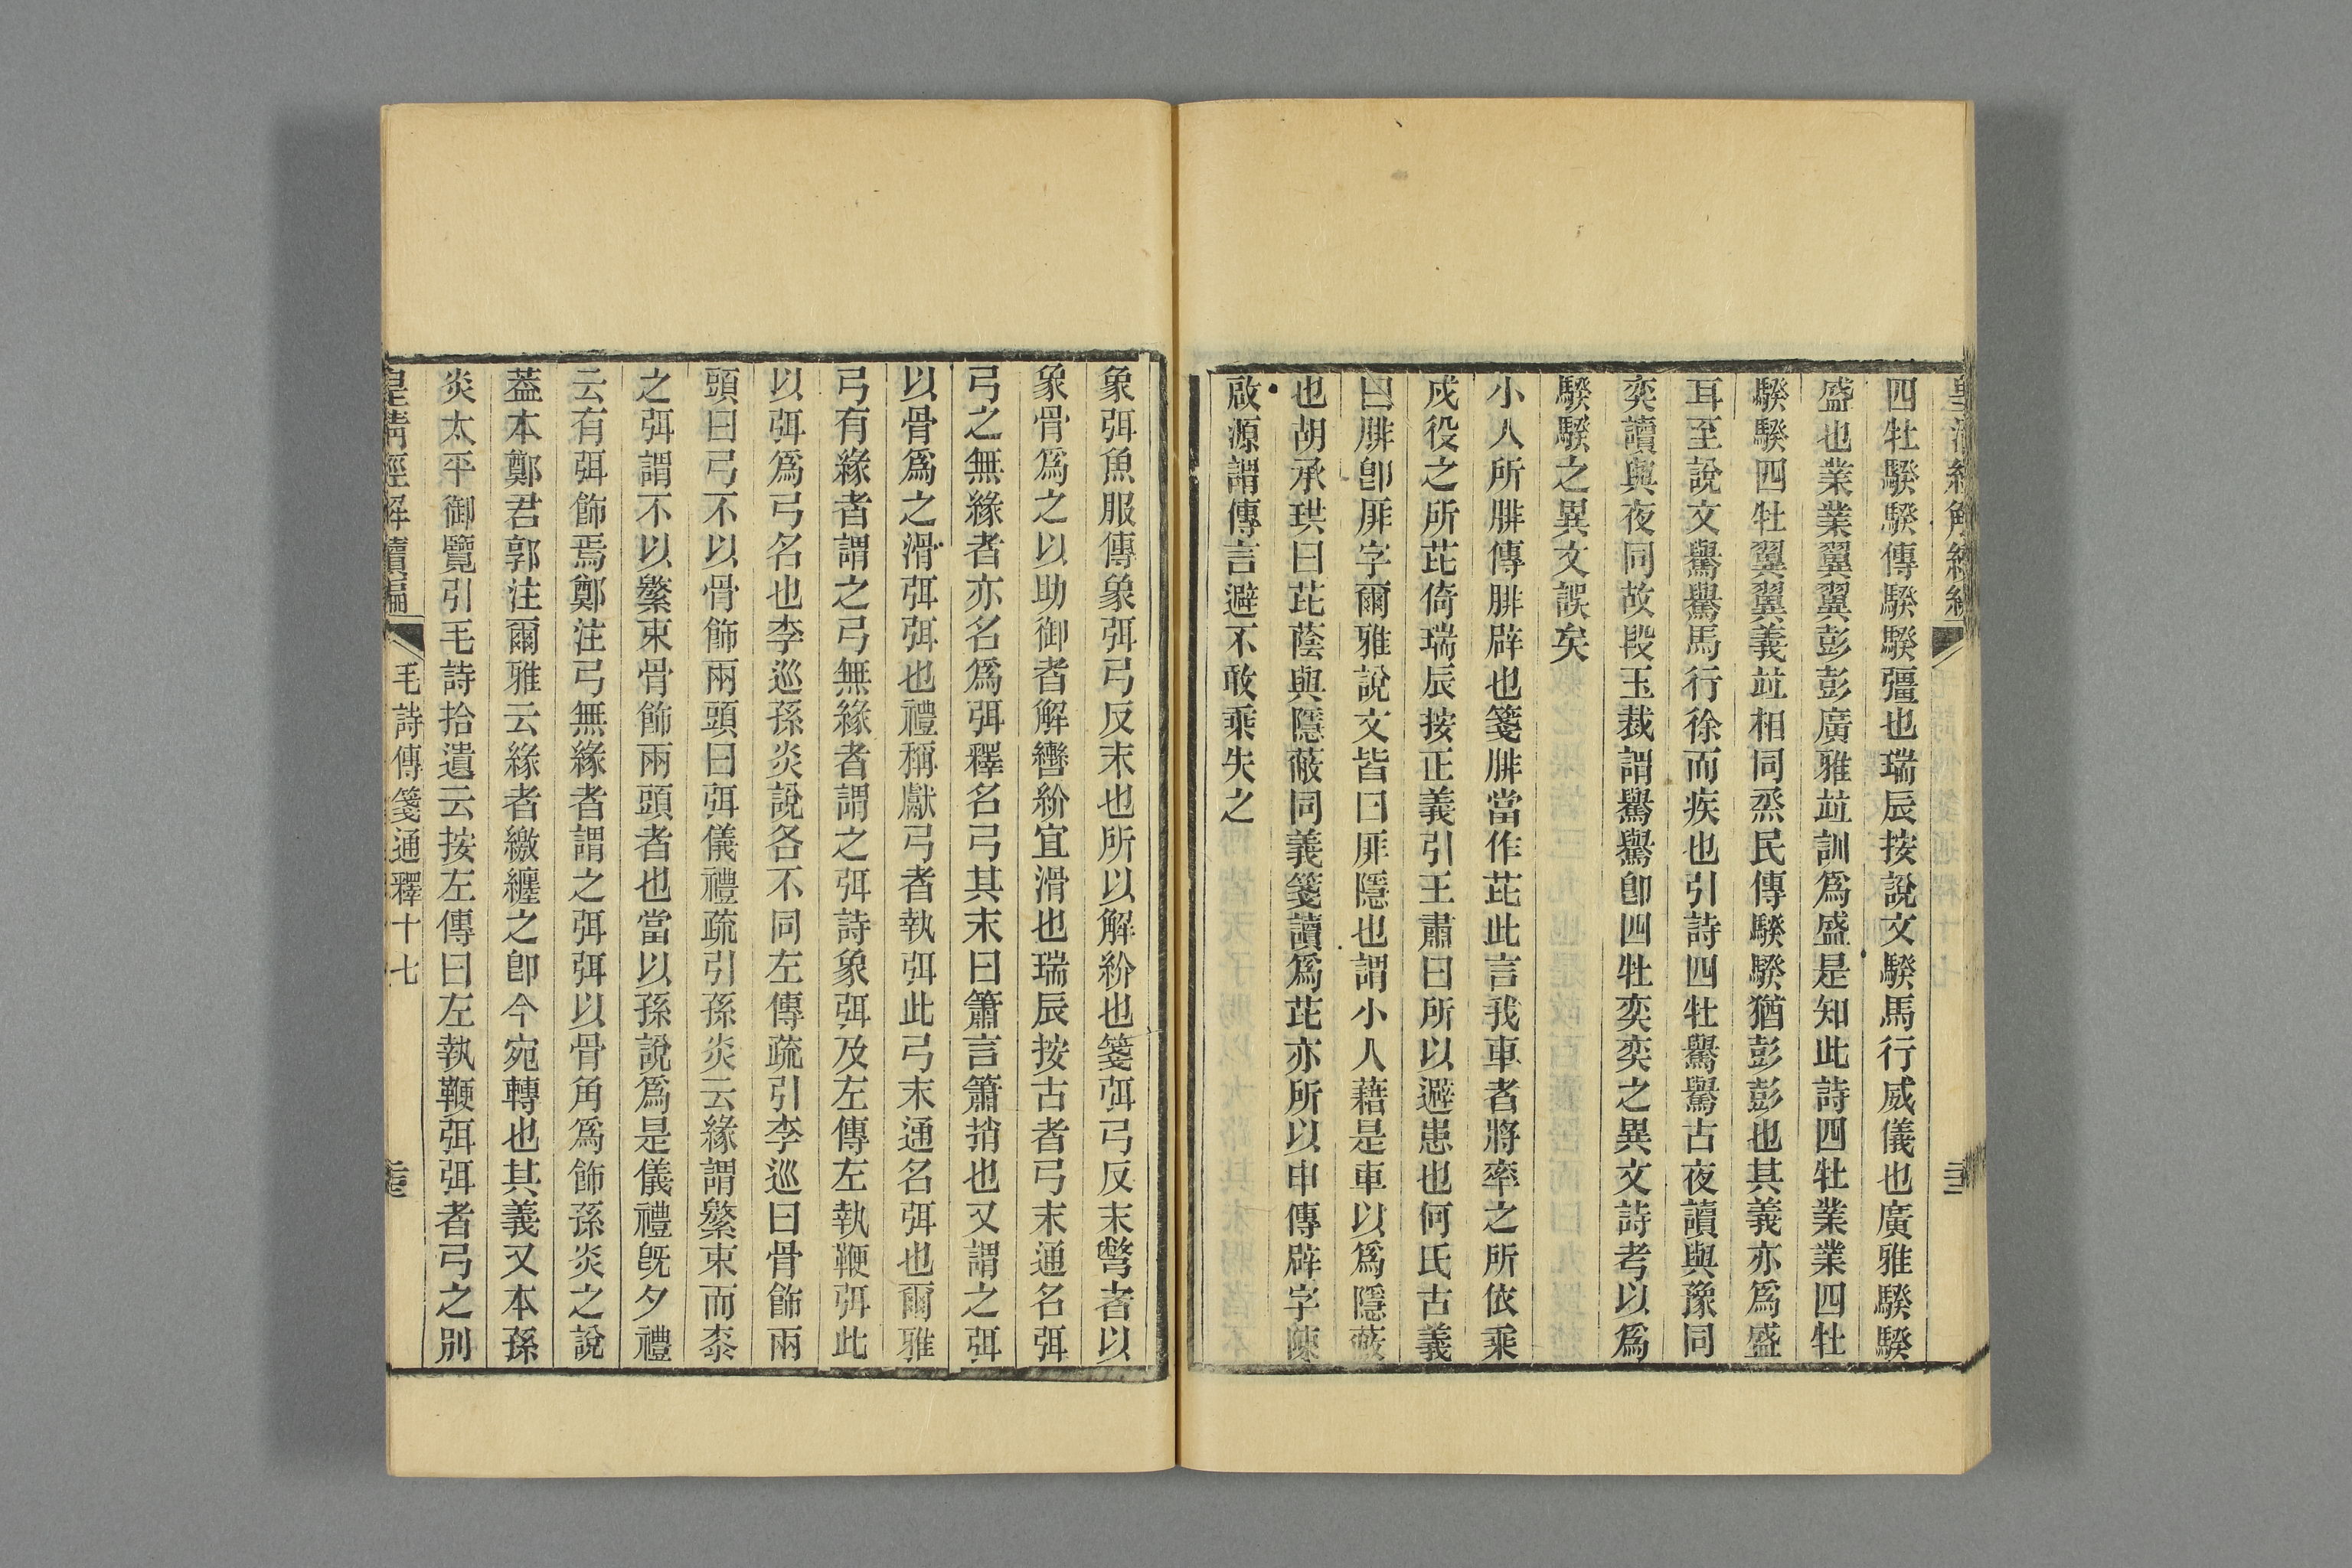 四牡騤騤傳騤騤彊也瑞辰按說文騤馬行威儀也廣雅騤騤
盛也業業翼翼彭彭廣雅竝訓爲盛是知此詩四牡業業四牡
騤騤四牡翼翼義竝相同烝民傳騤騤猶彭彭也其義亦爲盛
耳至說文鸒鸒馬行徐而疾也引詩四牡鸒鸒古夜讀與豫同
奕讀與夜同故段玉裁謂鸒鸒卽四牡奕奕之異文詩考以爲
騤騤之異文誤矣
小人所腓傳腓辟也箋腓當作芘此言我車者將率之所依乘
戍役之所芘倚瑞辰按正義引王肅曰所以避患也何氏古義
曰腓卽厞字爾雅說文皆曰厞隱也謂小人藉是車以爲隱蔽
也胡承珙曰芘蔭與隱蔽同義箋讀爲芘亦所以申傳辟字陳
啟源謂傳言避不敢乘失之
象弭魚服傳象弭弓反末也所以解紒也箋弭弓反末彆者以
象骨爲之以助御者解轡紒宜滑也瑞辰按古者弓末通名弭
弓之無緣者亦名爲弭釋名弓其末曰簫言簫捎也又謂之弭
以骨爲之滑弭弭也禮稱獻弓者執弭此弓末通名弭也爾雅
弓有緣者謂之弓無緣者謂之弭詩象弭及左傳左執鞭弭此
以弭爲弓名也李巡孫炎說各不同左傳疏引李巡曰骨飾兩
頭曰弓不以骨飾兩頭曰弭儀禮疏引孫炎云緣謂繁束而桼
之弭謂不以繁束骨飾兩頭者也當以孫說爲是儀禮旣夕禮
云有弭飾焉鄭注弓無緣者謂之弭弭以骨角爲飾孫炎之說
葢本鄭君郭注爾雅云緣者繳纏之卽今宛轉也其義又本孫
炎太平御覽引毛詩拾遺云按左傳曰左執鞭弭弭者弓之別
皇淸經解續編
毛詩傳箋通釋十七